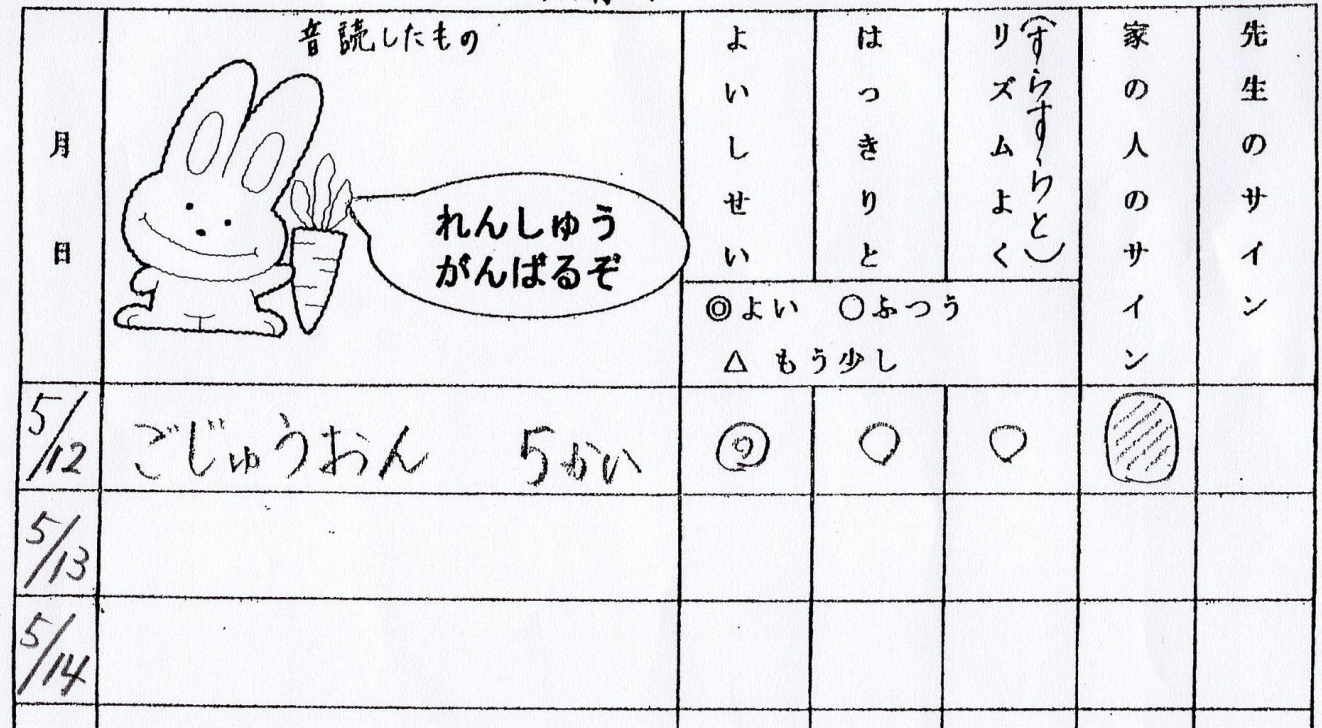 月日
音読したもの
れんしゅう
がんばるぞ
よいしせい
はっきりと
リズムよく
(すらすらと)
家の人のサイン
先生のサイン
◎よい ○ふつう
△もう少し
5/12 ごじゅうおん 5かい ◎ ○ ○
5/13
5/14